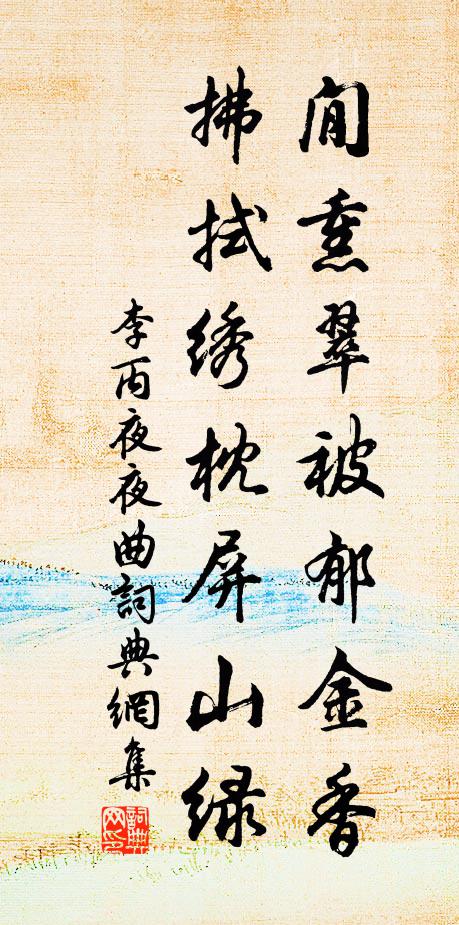 闲熏翠被郁金香
拂拭绣枕屏山绿
李丙夜夜曲詞典網集
詞典网印